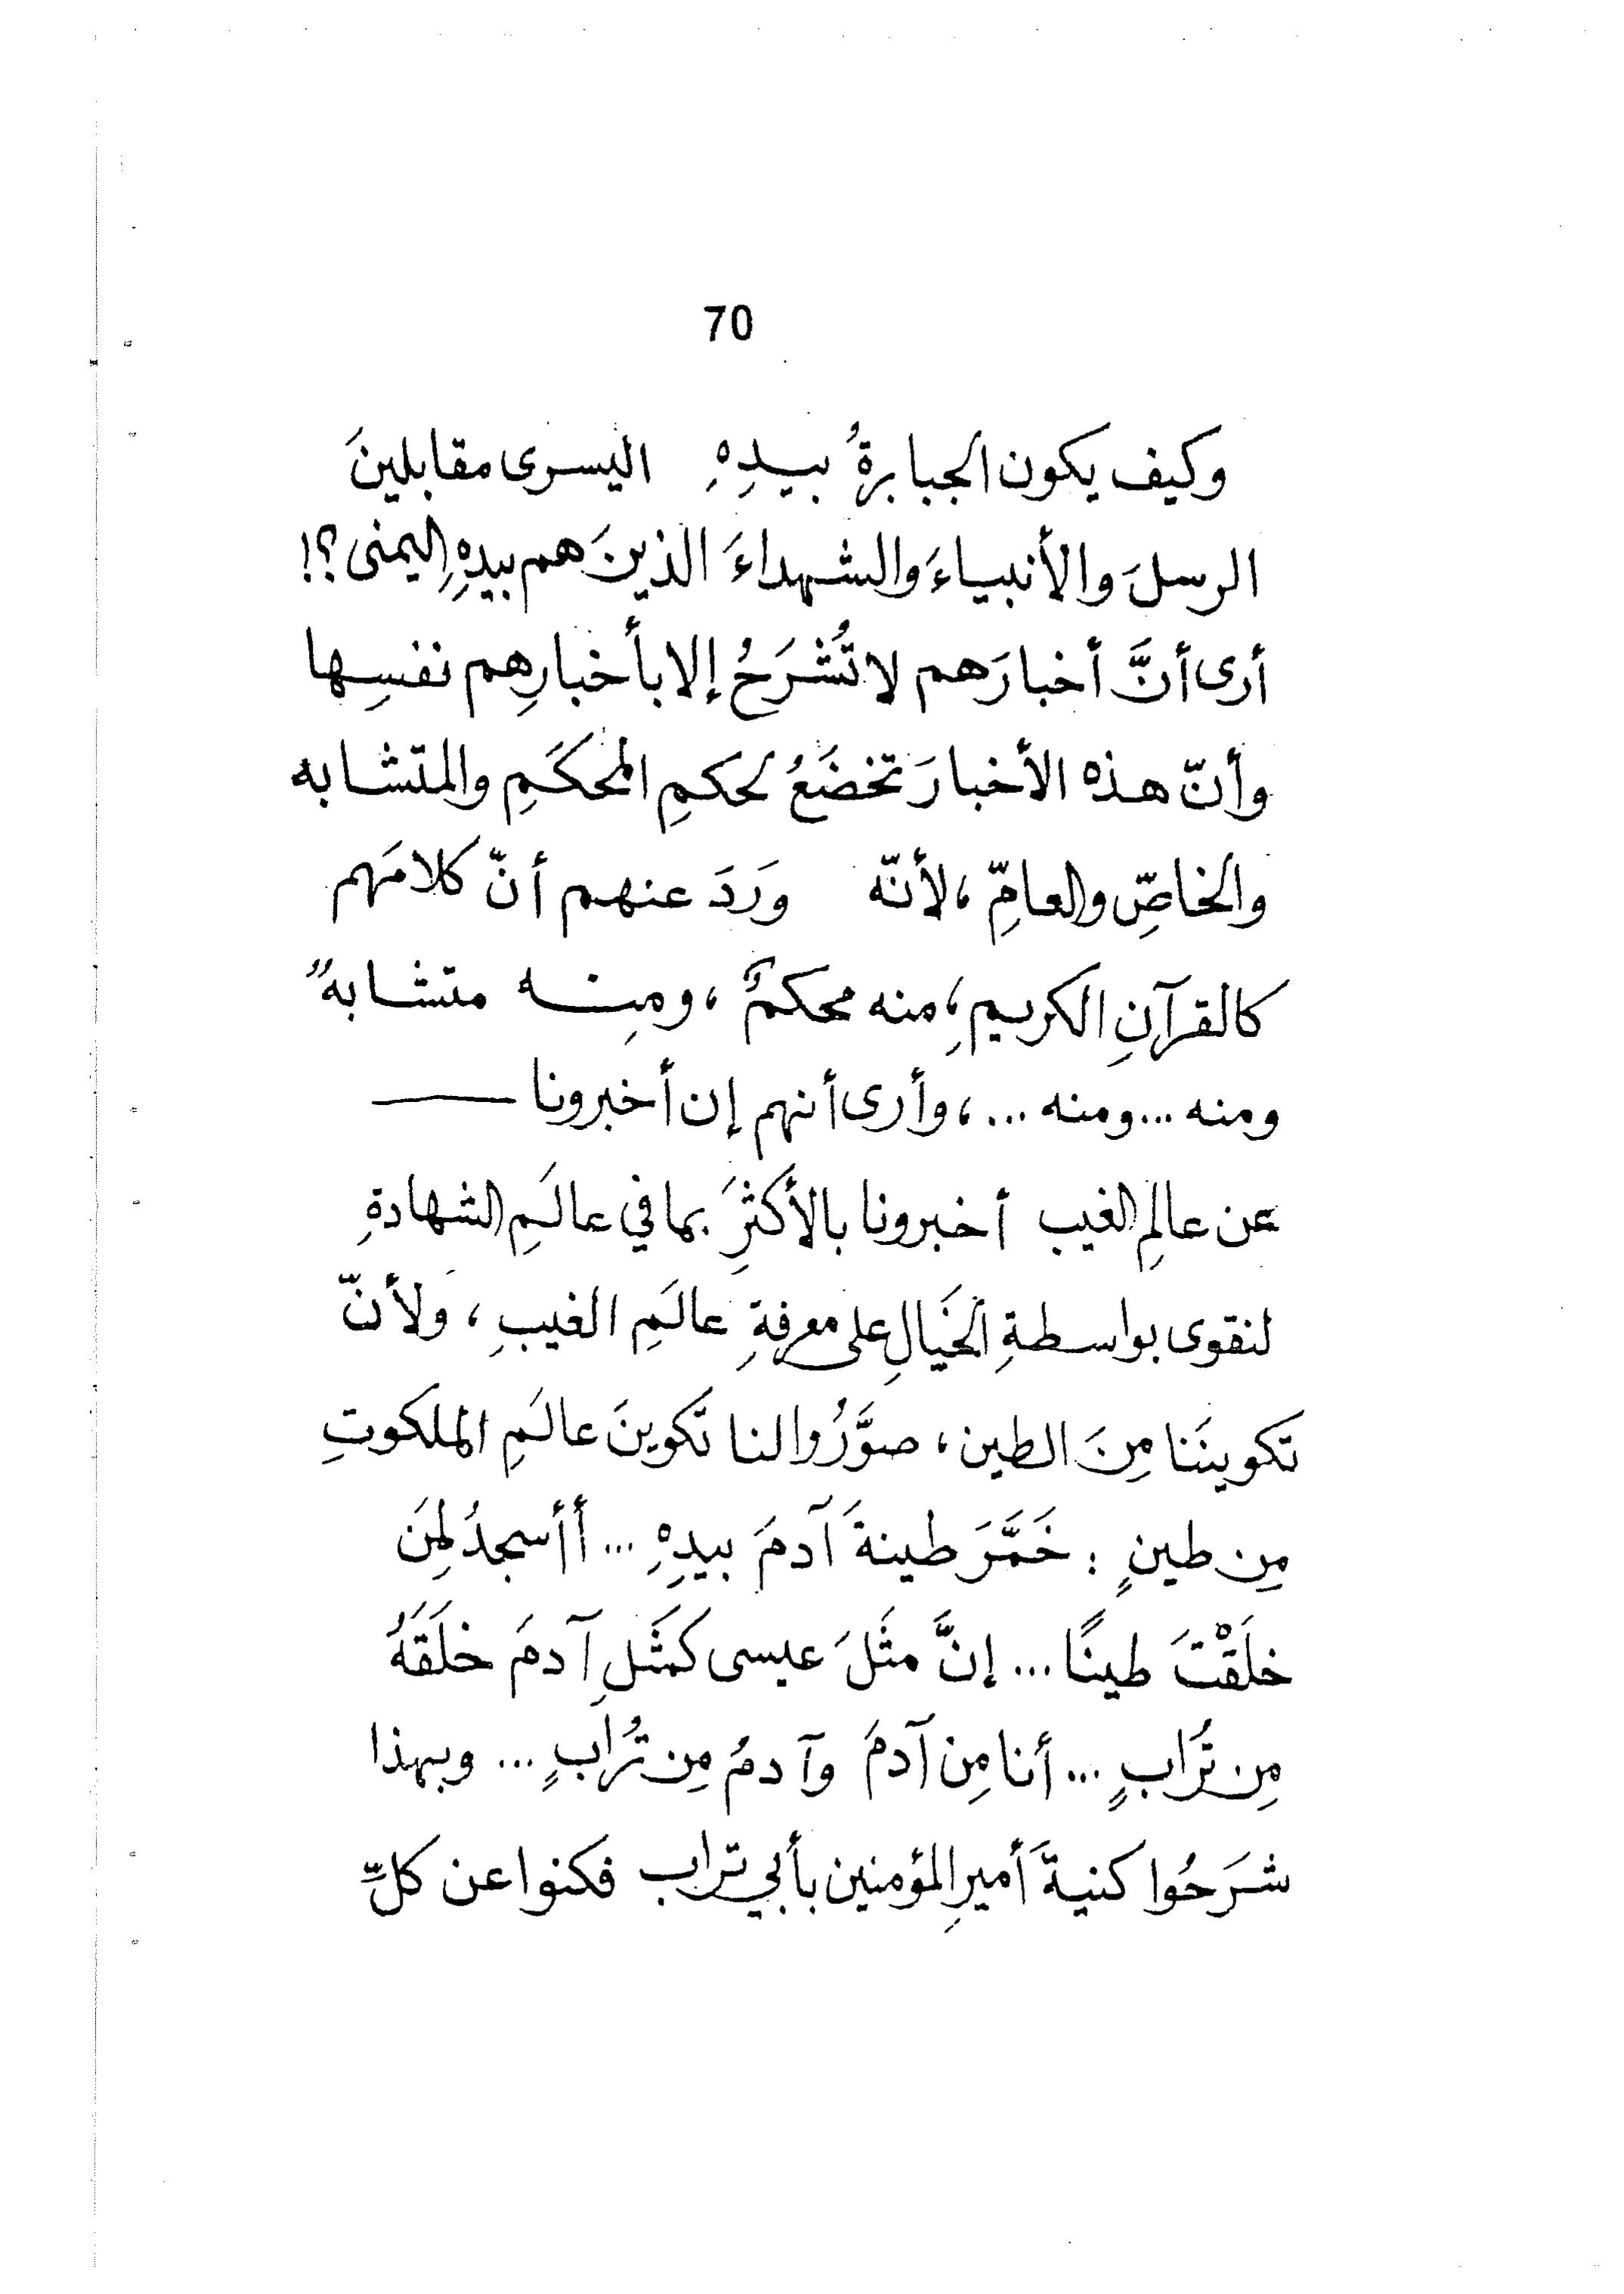 70
وكيف يكون الجبابرةُ بيدِهِ اليسرى مقابلينَ
الرسلَ والأنبياءَ والشهداءَ الذينَ هم بيدِهِ اليمنى؟!
أرى أنَّ أخبارَهم لا تُشْرَحُ إلا بأخبارِهم نفسِها
وأنّ هذه الأخبارَ تخضَعُ لحكمِ المحكَمِ والمتشابه
والخاصِّ والعامِّ، لأنّه وَرَدَ عنهم أنّ كلامَهم
كالقرآنِ الكريمِ، منه محكمٌ، ومنِه متشابهٌ
ومنه ... ومنه ...، وأرى أنهم إن أخبرونا ــــــ
عن عالمِ الغيب أخبرونا بالأكثرِ بما في عالَمِ الشهادةِ
لنقوى بواسطةِ الخَيالِ على معرفةِ عالَمِ الغيبِ، ولأنّ
تكوينَنا مِنَ الطين، صوَّرُوا لنا تكوينَ عالَمِ الملكوتِ
مِن طينٍ : خَمَّرَ طينةَ آدمَ بيدِهِ ... أأسجدُ لِمَن
خلَقْتَ طينًا ... إنَّ مثَلَ عيسى كمثَلِ آدمَ خلَقَهُ
مِن تُرَابٍ ... أنا مِن آدمَ وآدمُ مِن تُرَابٍ ... وبهذا
شرَحُوا كنيةَ أميرِ المؤمنين بأبي تراب فكنوا عن كلِّ